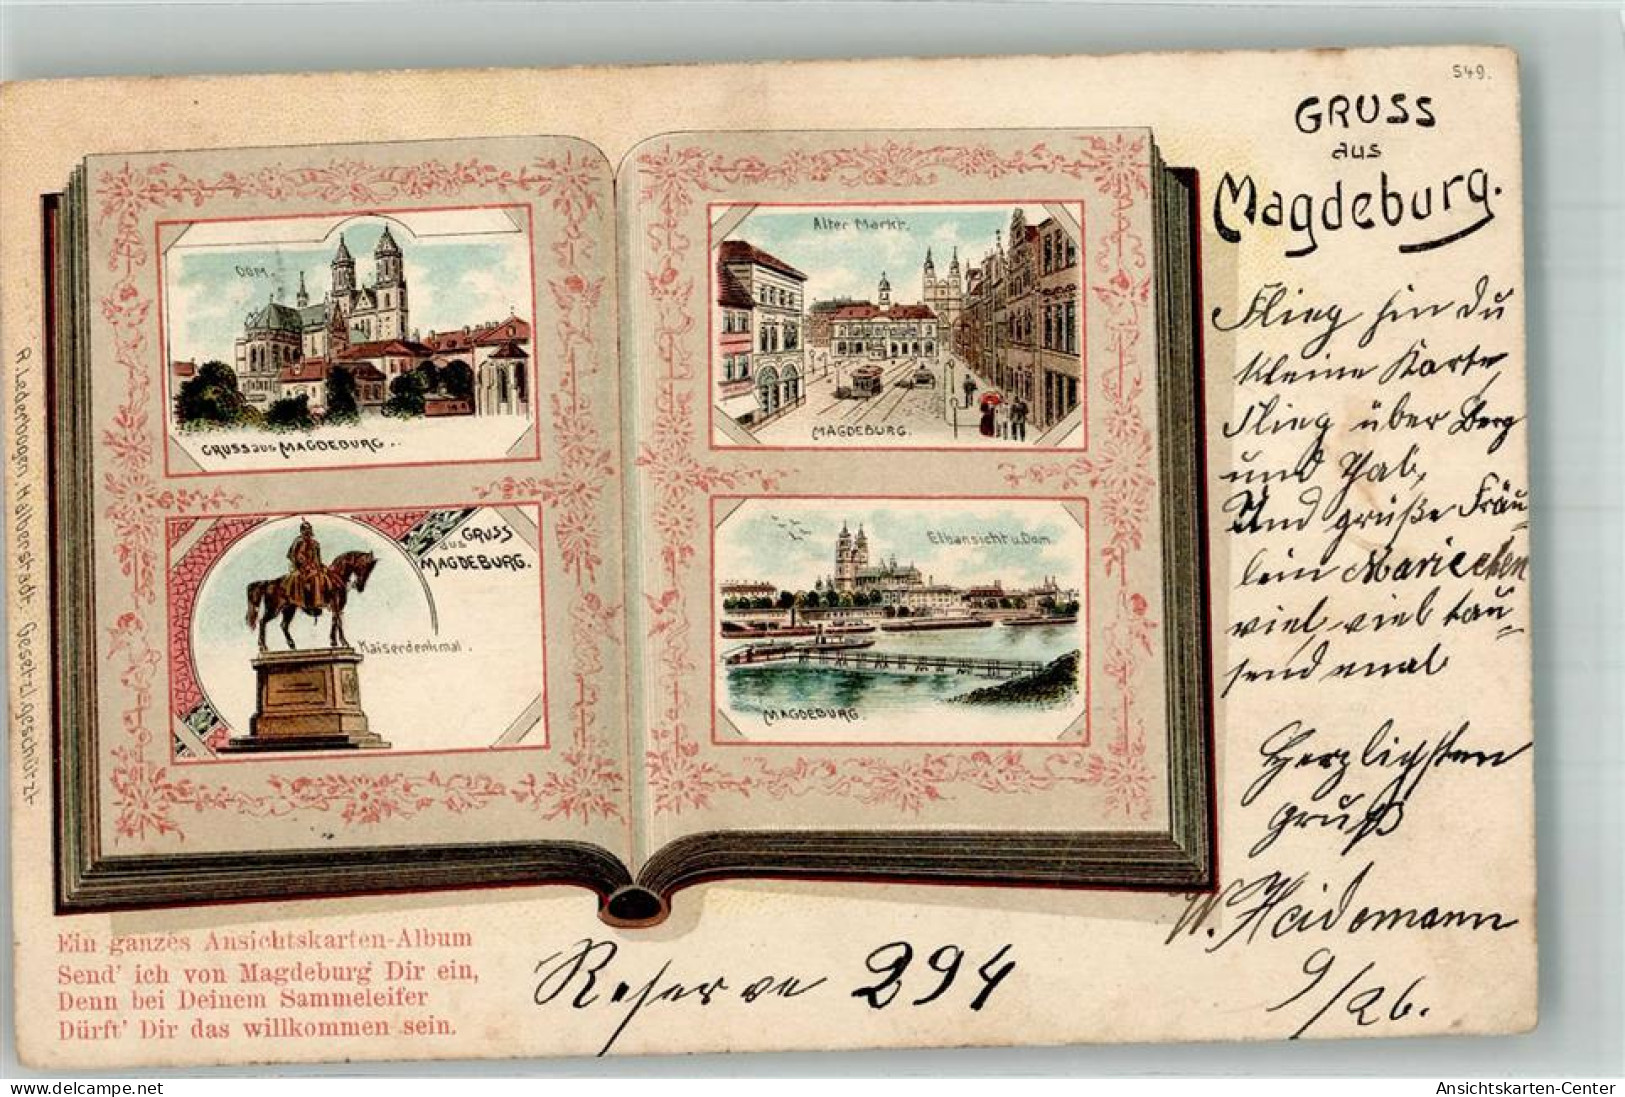 549.
GRUSS
aus
Magdeburg.
DOM.
GRUSS aus MAGDEBURG..
Alter Markt.
MAGDEBURG.
GRUSS
aus
MAGDEBURG.
Kaiserdenkmal.
Elbansicht u. Dom
MAGDEBURG.
R. Lederbogen Halberstadt. Gesetzl. geschützt
Flieg hin du
kleine Karte,
Flieg über Berg
und Thal,
Und grüße Fräu-
lein Mariechen
viel, viel tau-
send mal
Herzlichsten
gruß
W. Heidemann
9/26.
Ein ganzes Ansichtskarten-Album
Send' ich von Magdeburg Dir ein,
Denn bei Deinem Sammeleifer
Dürft' Dir das willkommen sein.
Reserve 294
Ansichtskarten-Center